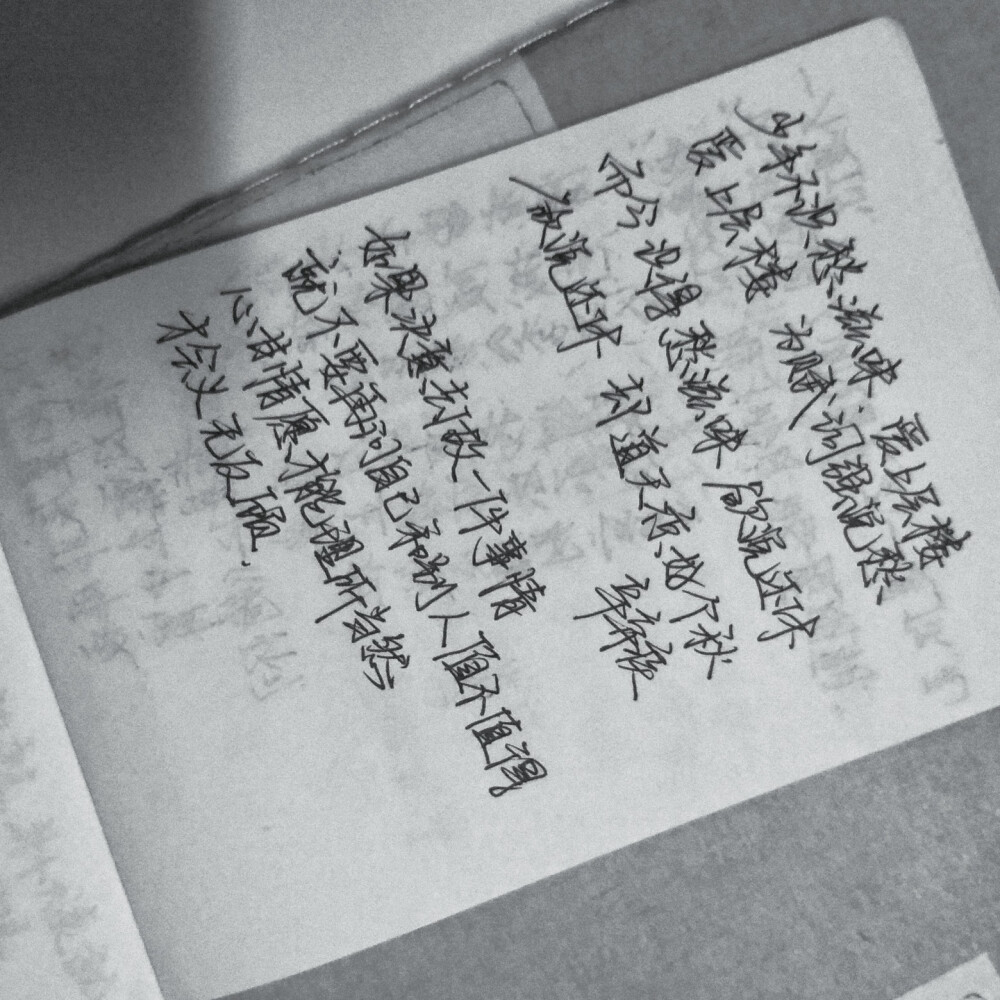 少年不识愁滋味、爱上层楼
爱上层楼 为赋词强说愁
而今识得愁滋味 欲说还休
欲说还休 却道天凉好个秋
辛弃疾
如果决意去做一件事情
就不要再问自己和别人值不值得
心甘情愿才能理所当然
才会义无反顾.